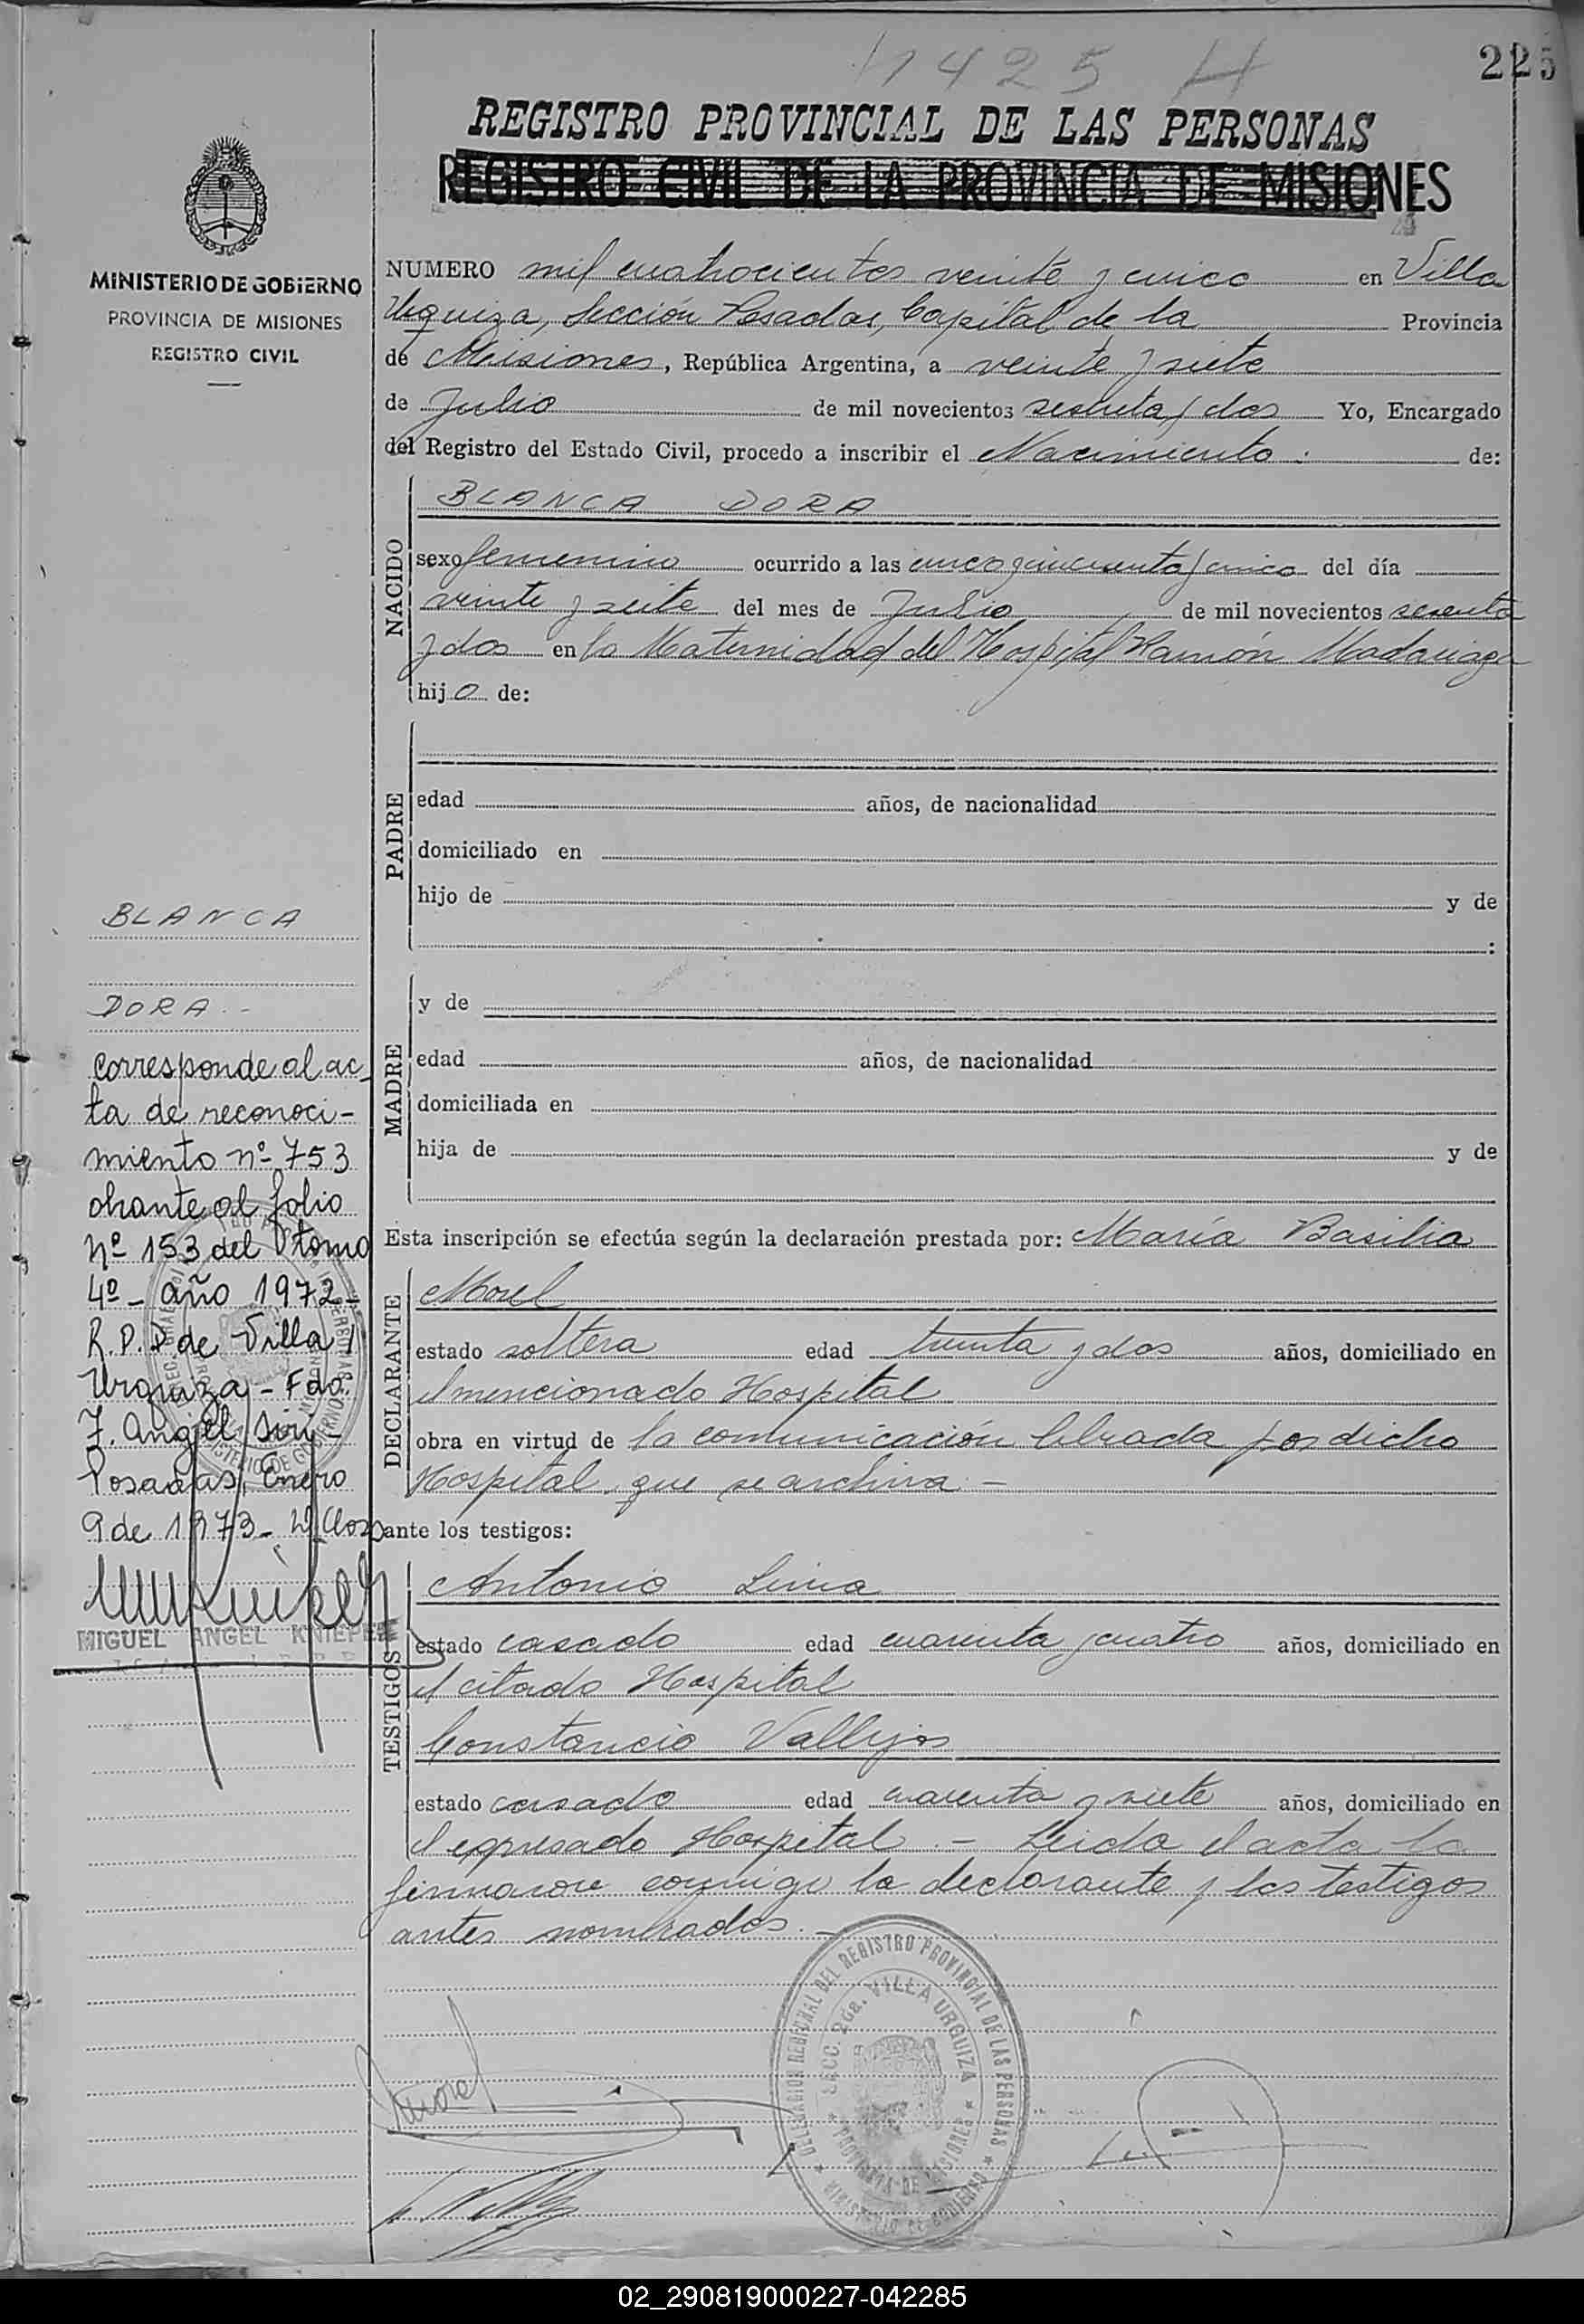 1425
225
REGISTRO PROVINCIAL DE LAS PERSONAS
REGISTRO CIVIL DE LA PROVINCIA DE MISIONES
MINISTERIO DE GOBIERNO
PROVINCIA DE MISIONES
REGISTRO CIVIL
NUMERO mil cuatrocientos veinte y cinco en Villa
Urquiza, Sección Posadas, Capital de la Provincia
de Misiones, República Argentina, a veinte y siete
de Julio de mil novecientos sesenta y dos Yo, Encargado
del Registro del Estado Civil, procedo a inscribir el Nacimiento de:
NACIDO
BLANCA DORA
sexo femenino ocurrido a las cinco y cincuenta y cinco del día
veinte y siete del mes de Julio de mil novecientos sesenta
y dos en la Maternidad del Hospital Ramón Madariaga
hij a de:
PADRE
edad años, de nacionalidad
domiciliado en
hijo de y de
:
MADRE
y de
edad años, de nacionalidad
domiciliada en
hija de y de
Esta inscripción se efectúa según la declaración prestada por: María Basilia
DECLARANTE
Morel
estado soltera edad treinta y dos años, domiciliado en
el mencionado Hospital
obra en virtud de la comunicación librada por dicho
Hospital, que se archiva.-
ante los testigos:
TESTIGOS
Antonio Lima
estado casado edad cuarenta y cuatro años, domiciliado en
el citado Hospital
Constancio Vallejos
estado casado edad cuarenta y siete años, domiciliado en
el expresado Hospital.- Leida el acta la
firmaron conmigo la declarante y los testigos
antes nombrados.-
BLANCA
DORA.-
Corresponde al ac-
ta de reconoci-
miento nº 753
obrante al folio
nº 153 del tomo
4º - año 1972-
R.P.P de Villa
Urquiza - Fdo.
F. Angel Siri-
Posadas, Enero
9 de 1973-
MIGUEL ANGEL KNIEPER
Morel
DELEGACION REGIONAL DEL REGISTRO PROVINCIAL DE LAS PERSONAS
SECC. 2da. VILLA URQUIZA
PROVINCIA DE MISIONES
MINISTERIO DE GOBIERNO
02_290819000227-042285